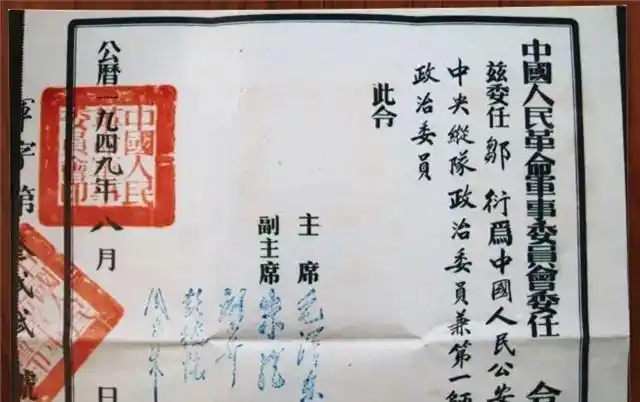 中國人民革命軍事委員會委任令
茲委任鄒衍爲中國人民公安
中央縱隊政治委員兼第一師
政治委員
此令
主席 毛澤東
副主席 朱德
劉少奇
周恩來
彭德懷
公曆一九四九年八月 日
軍字第
號
中國人民革命軍事委員會印